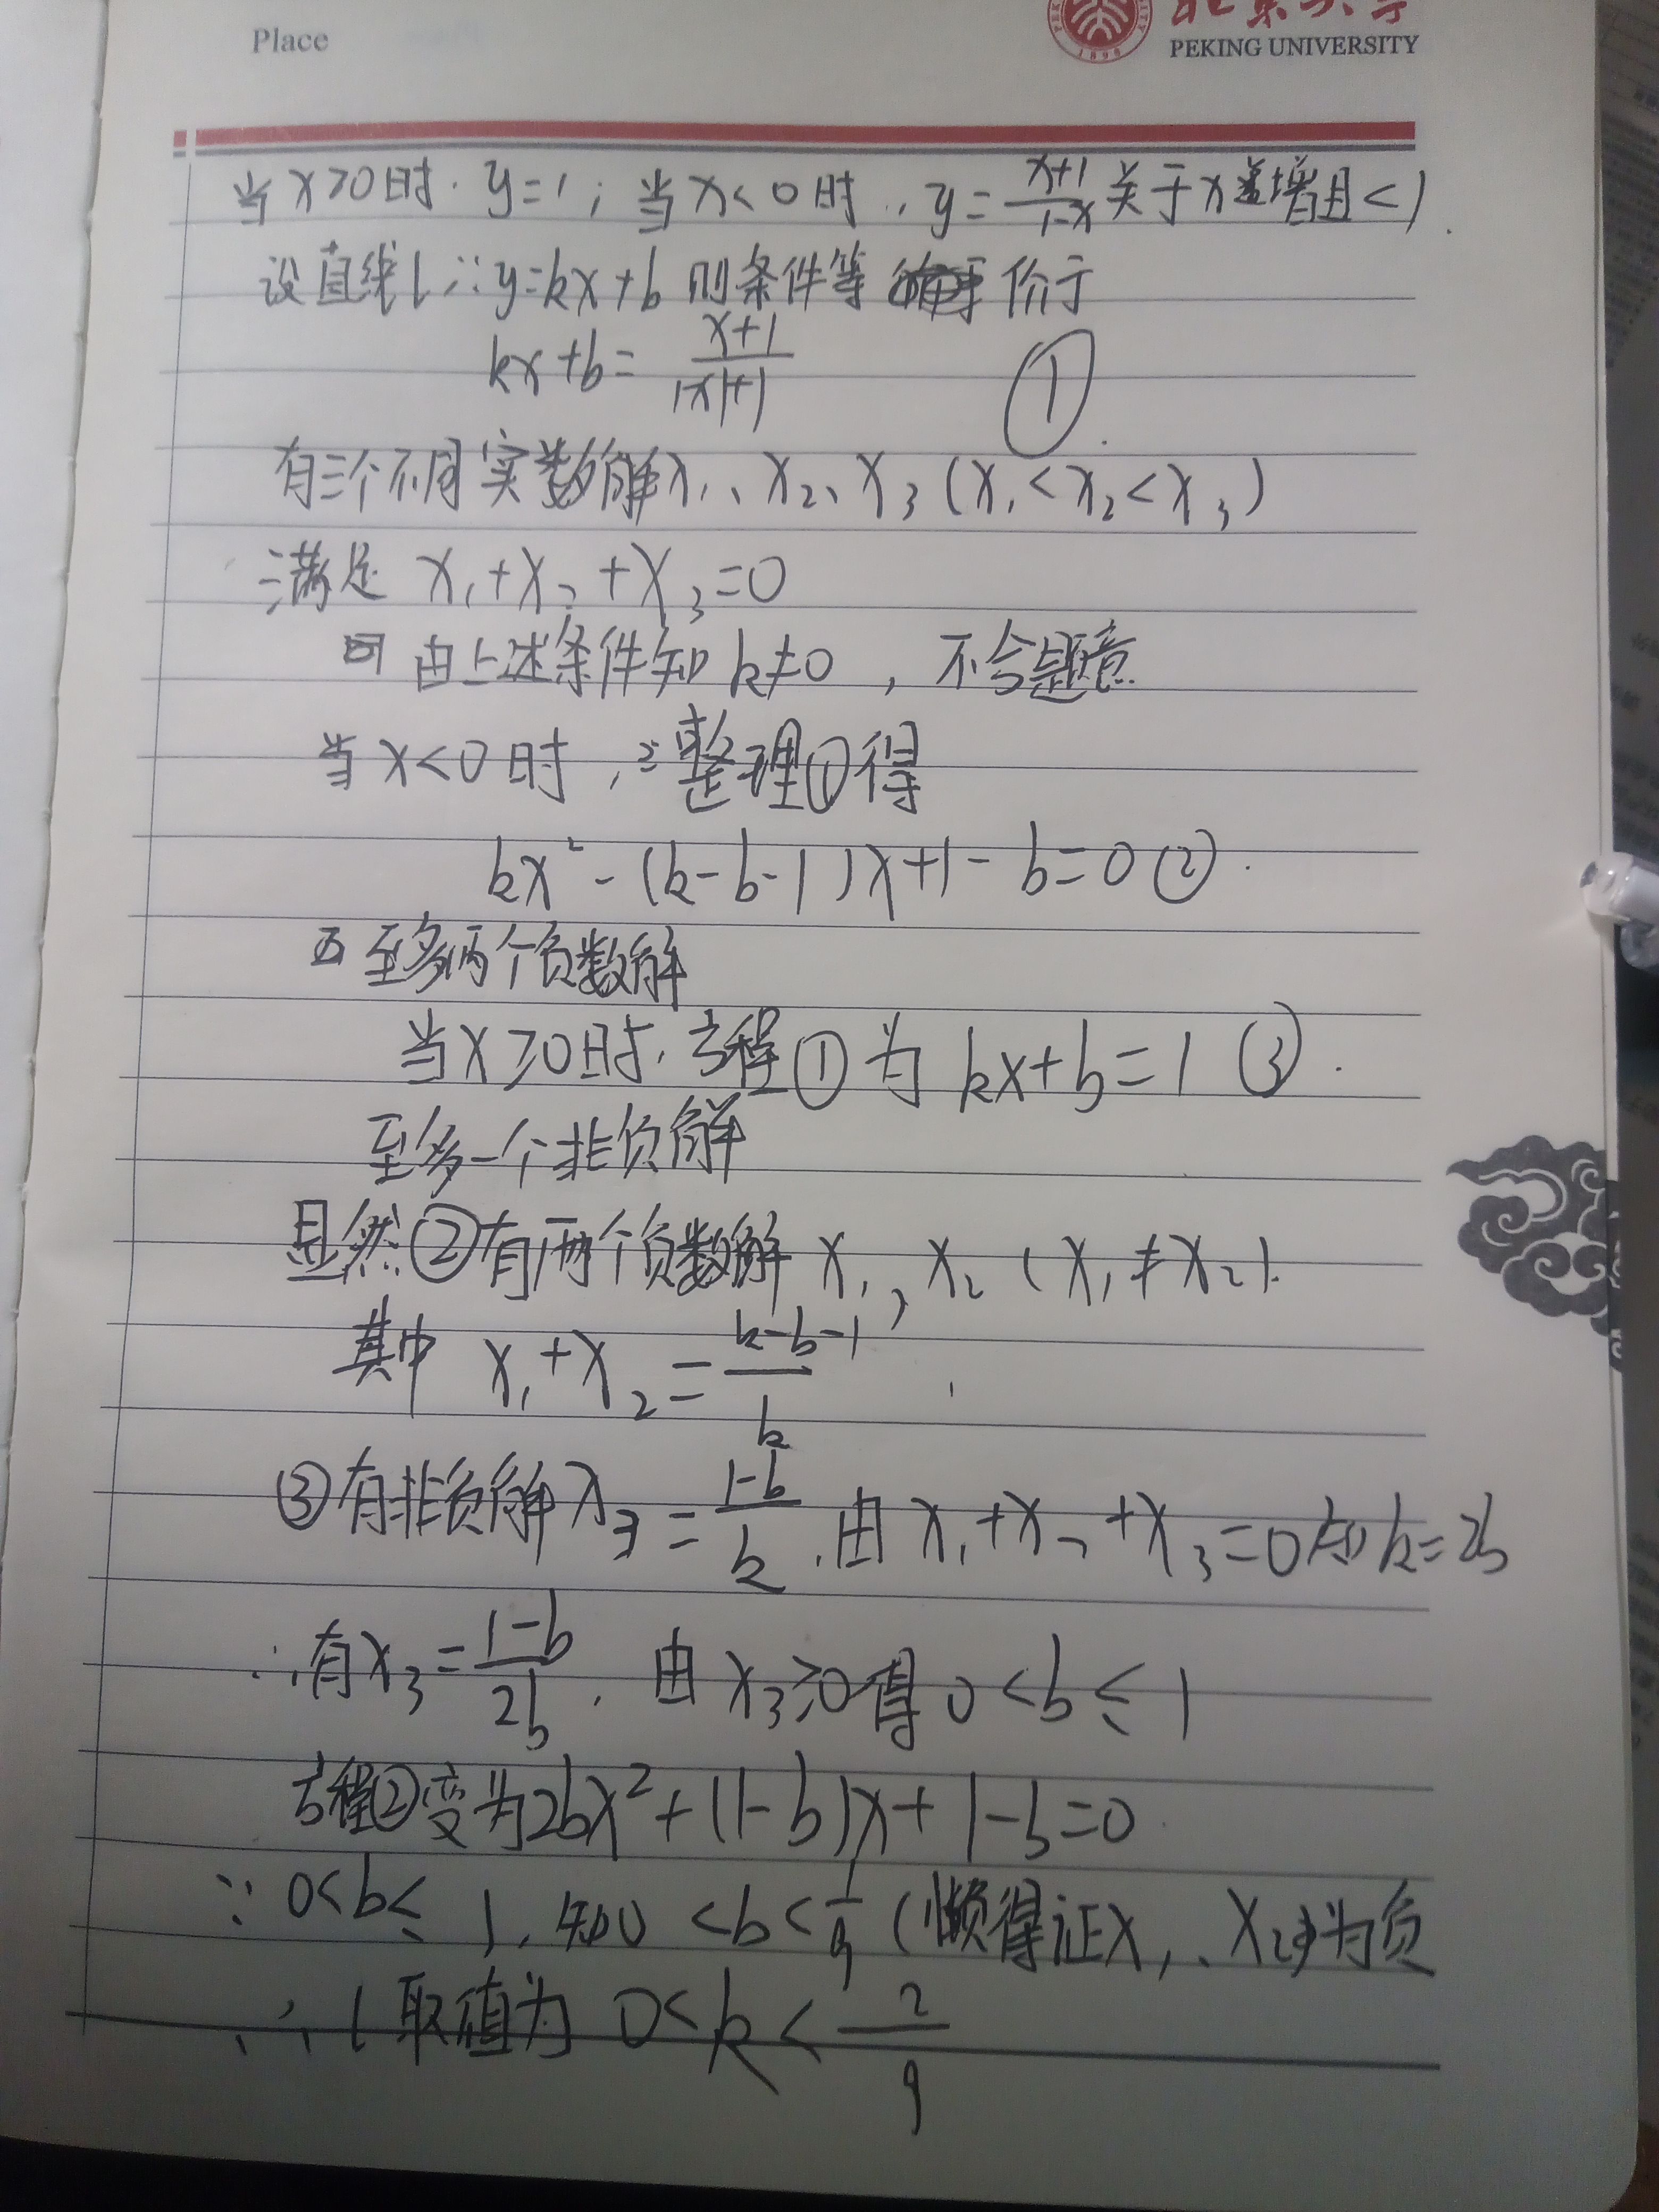 Place
PEKING UNIVERSITY
当x≥0时. y=1; 当x<0时, y=\frac{x+1}{1-x}关于x递增且<1.
设直线l: y=kx+b 则条件等价于
kx+b=\frac{x+1}{|x|+1} ①.
有三个不同实数解x₁、x₂、x₃(x₁<x₂<x₃)
满足 x₁+x₂+x₃=0
由上述条件知 k≠0, 不合题意
当x<0时, 整理①得
kx²-(k-b-1)x+1-b=0 ②.
至多两个负数解
当x≥0时. 方程①为 kx+b=1 ③.
至多一个非负解
显然②有两个负数解 x₁, x₂ (x₁≠x₂).
其中 x₁+x₂=\frac{k-b-1}{k},
③有非负解x₃=\frac{1-b}{k}. 由x₁+x₂+x₃=0知k=2b
∴有x₃=\frac{1-b}{2b}. 由x₃≥0得 0<b≤1
方程②变为2bx²+(1-b)x+1-b=0
∵0<b≤1, 知0<b<\frac{1}{9} (懒得证x₁、x₂为负
∴l取值为 0<k<\frac{2}{9}